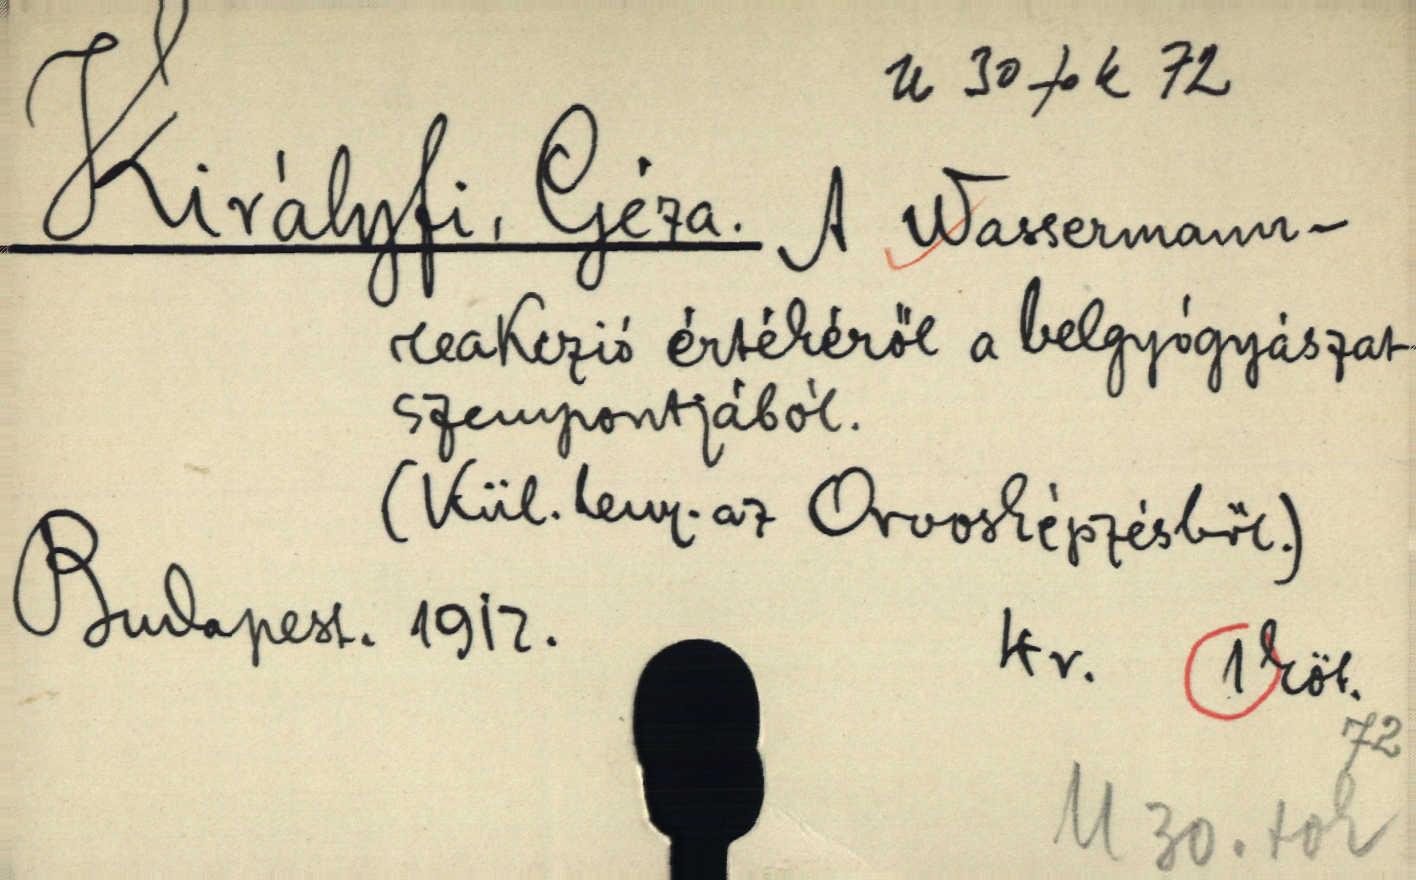 U 30 tok 72
Királyfi, Géza. A Wassermann-
reakczió értékéről a belgyógyászat
szempontjából.
(Kül. leny. az Orvosképzésből.)
Budapest. 1912.
4 r. 1 köt.
72
U 30. tok